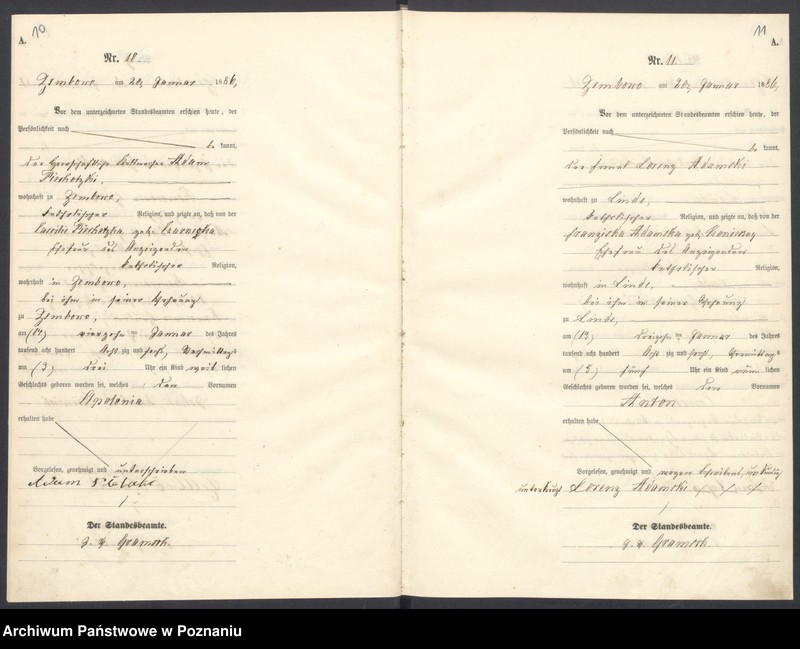 10
A.
Nr. 10
Zembowo am 20. Januar 1886,
Vor dem unterzeichneten Standesbeamten erschien heute, der
Persönlichkeit nach
be kannt,
der herrschaftliche Adam
wohnhaft zu Zembowo,
katholischer Religion, und zeigte an, daß von der
geb.
Ehefrau des Anzeigenden
katholischer Religion,
wohnhaft in Zembowo,
bei ihm in seiner Wohnung
zu Zembowo,
am (14) vierzehn ten Januar des Jahres
tausend acht hundert acht zig und sechs, Nachmittags
um (3) drei Uhr ein Kind weib lichen
Geschlechts geboren worden sei, welches den Vornamen
Apolonia
erhalten habe
Vorgelesen, genehmigt und unterschrieben
Adam
Der Standesbeamte.
11
A.
Nr. 11
Zembowo am 20. Januar 1886,
Vor dem unterzeichneten Standesbeamten erschien heute, der
Persönlichkeit nach
be kannt,
der Lorenz Adamski
wohnhaft zu Linde,
katholischer Religion, und zeigte an, daß von der
Franziska Adamska geb.
Ehefrau des Anzeigenden
katholischer Religion,
wohnhaft in Linde,
bei ihm in seiner Wohnung
zu Linde,
am (13) dreizehn ten Januar des Jahres
tausend acht hundert acht zig und sechs, Vormittags
um (5) fünf Uhr ein Kind männ lichen
Geschlechts geboren worden sei, welches den Vornamen
Anton
erhalten habe
Vorgelesen, genehmigt und wegen
unterkreuzt Lorenz Adamski + + +
Der Standesbeamte.
Archiwum Państwowe w Poznaniu